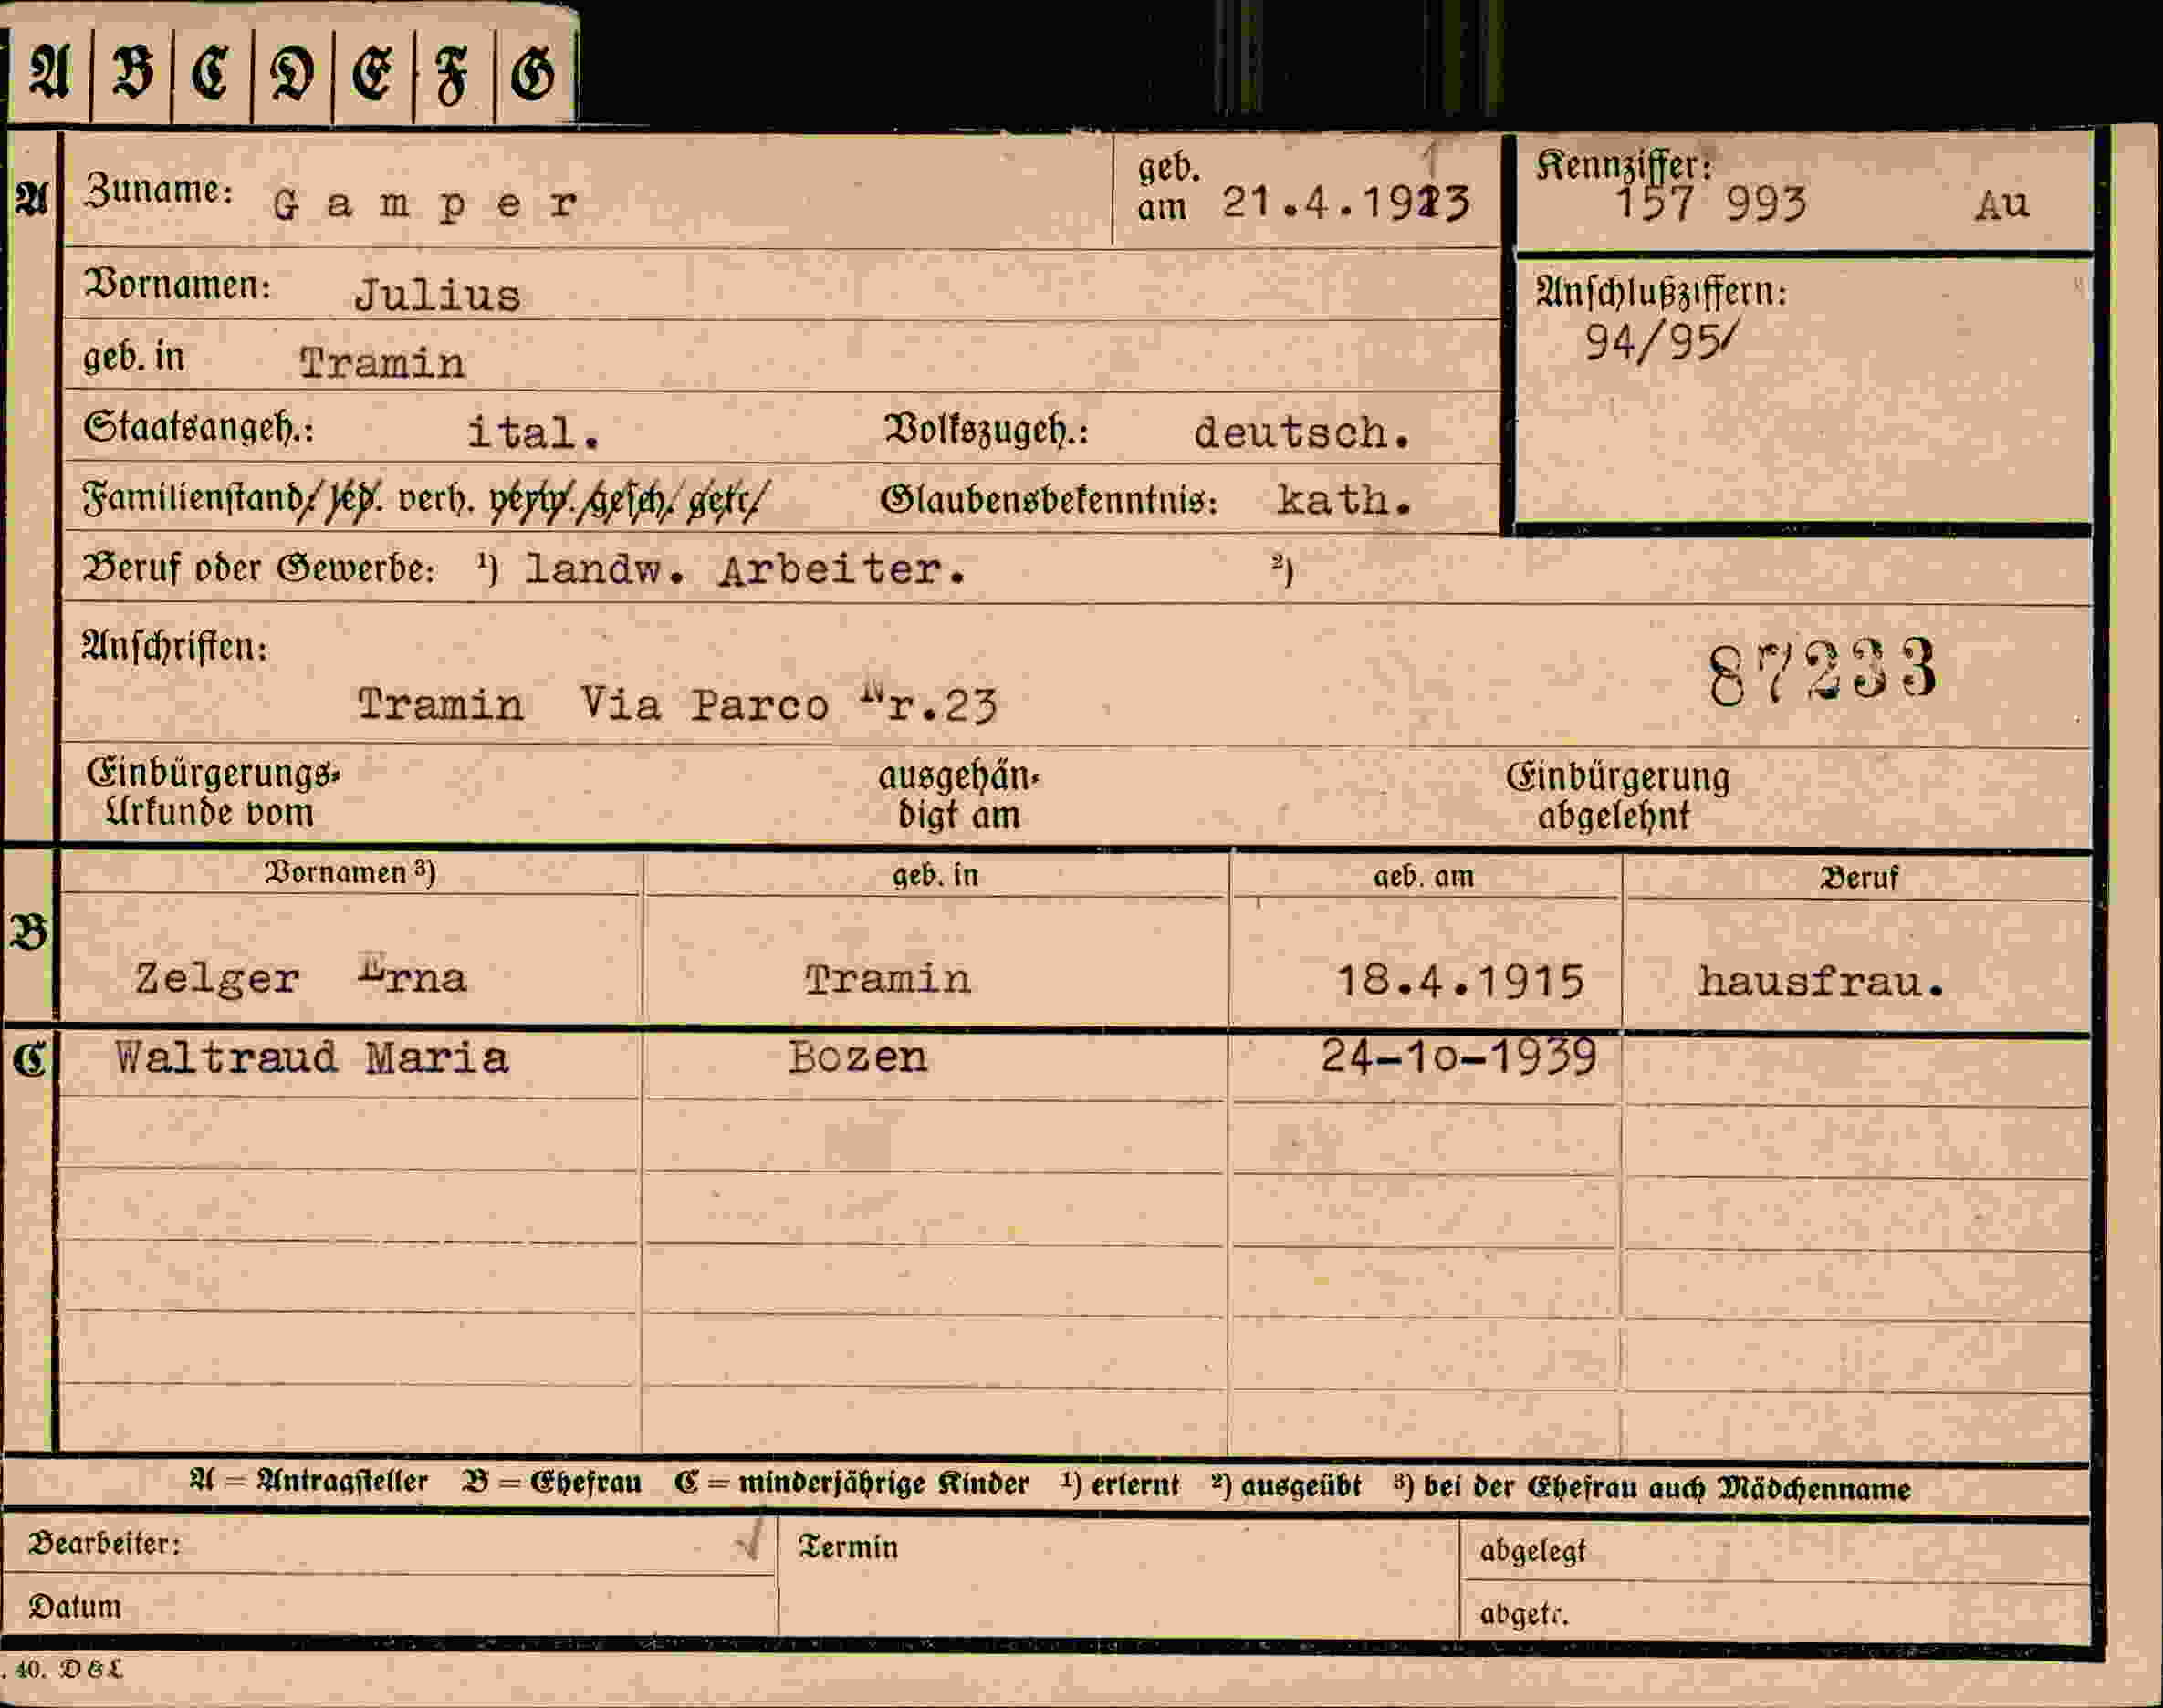 A B C D E F G
A Zuname: Gamper geb. am 21.4.1913 Kennziffer: 157 993 Au
Vornamen: Julius
Anschlußziffern:
94/95/
geb. in Tramin
Staatsangeh.: ital. Volkszugeh.: deutsch.
Familienstand/ led. verh. verw. gesch. getr. Glaubensbekenntnis: kath.
Beruf oder Gewerbe: ¹) landw. Arbeiter. ²)
Anschriften:
87233
Tramin Via Parco Nr.23
Einbürgerungs-
Urkunde vom
ausgehän-
digt am
Einbürgerung
abgelehnt
Vornamen ³) geb. in geb. am Beruf
B
Zelger Erna Tramin 18.4.1915 hausfrau.
C Waltraud Maria Bozen 24-10-1939
A = Antragsteller B = Ehefrau C = minderjährige Kinder ¹) erlernt ²) ausgeübt ³) bei der Ehefrau auch Mädchenname
Bearbeiter: Termin abgelegt
Datum abgetr.
. 40. D & L